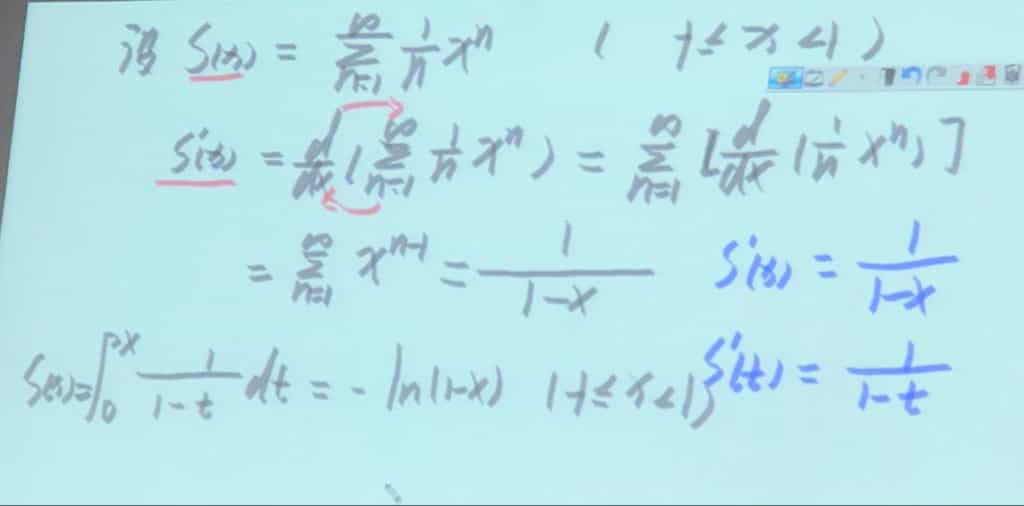 设 S(x) = ∑_{n=1}^{∞} \frac{1}{n} x^n ( -1 ≤ x < 1 )
S'(x) = \frac{d}{dx} ( ∑_{n=1}^{∞} \frac{1}{n} x^n ) = ∑_{n=1}^{∞} [ \frac{d}{dx} ( \frac{1}{n} x^n ) ]
= ∑_{n=1}^{∞} x^{n-1} = \frac{1}{1-x} S'(x) = \frac{1}{1-x}
S(x) = ∫_0^x \frac{1}{1-t} dt = - ln(1-x) ( -1 ≤ x < 1 ) S'(t) = \frac{1}{1-t}